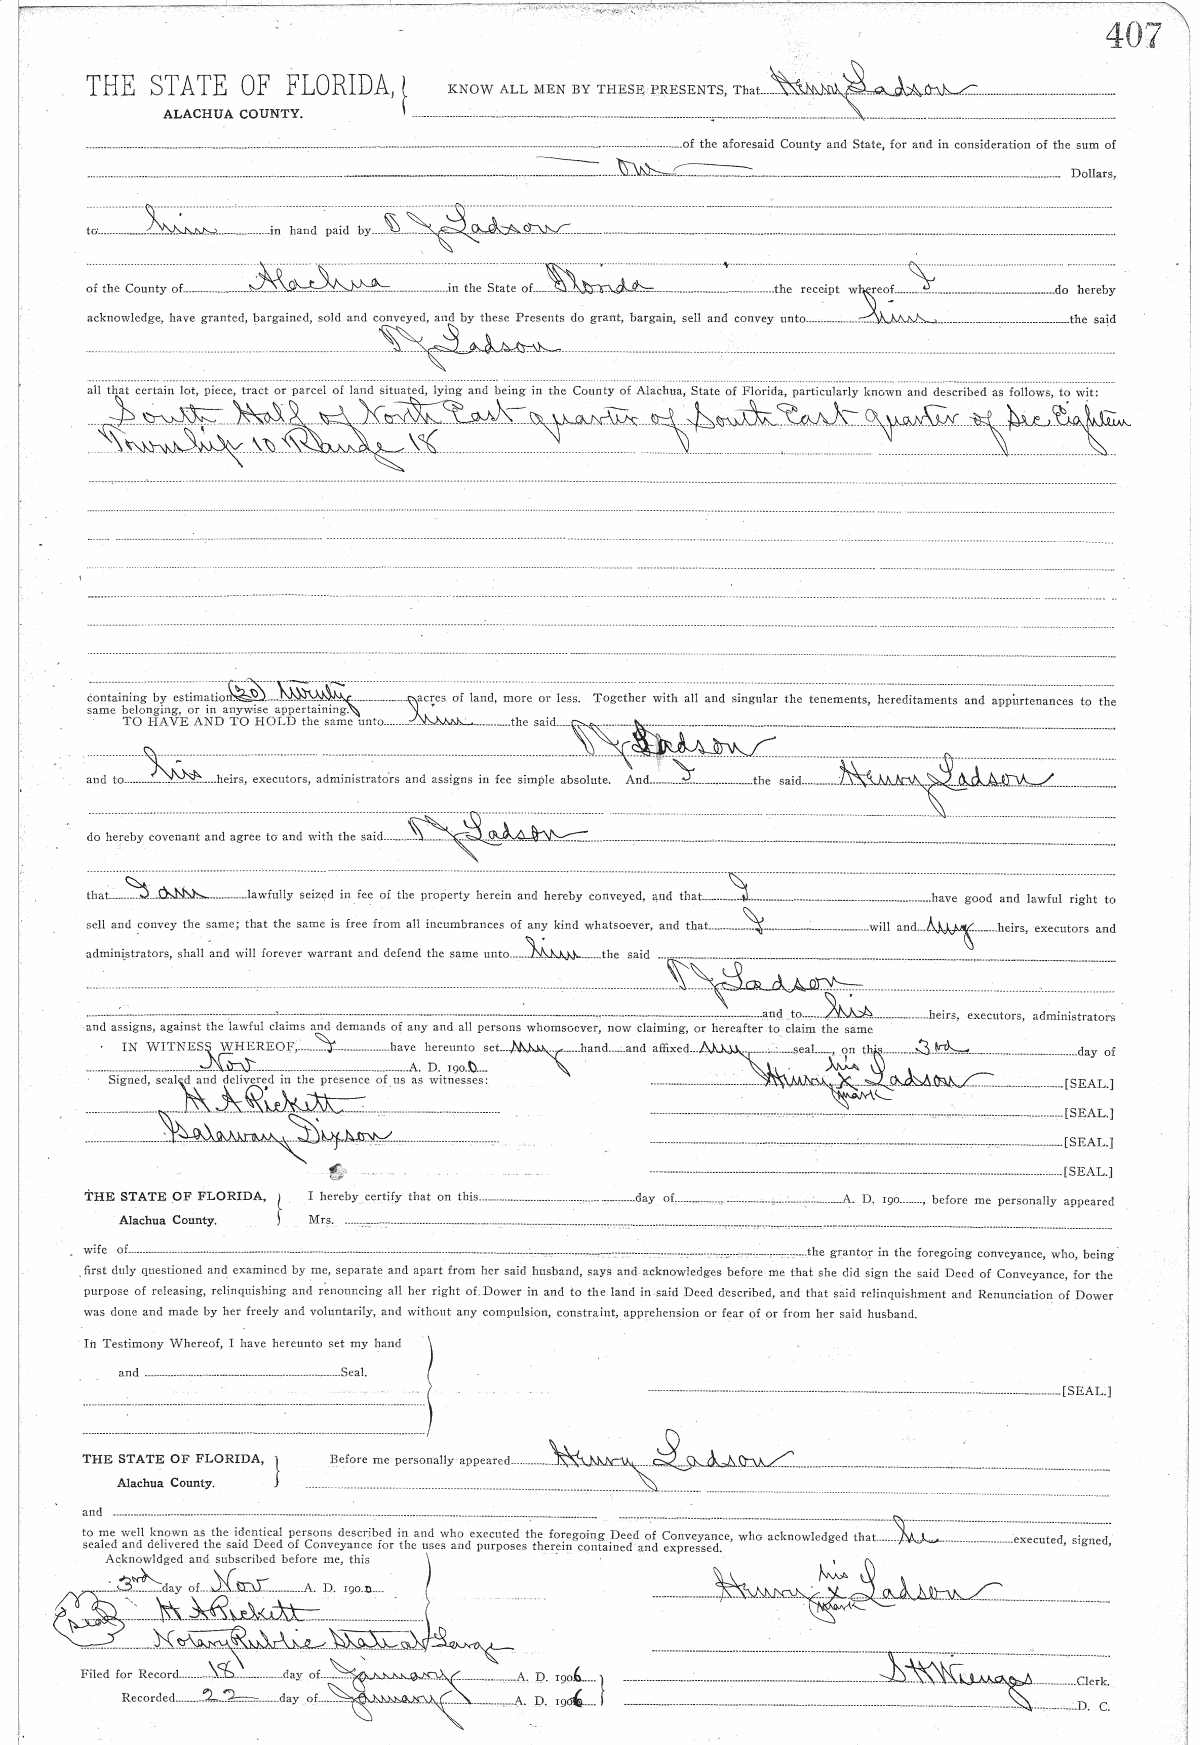 407
THE STATE OF FLORIDA, KNOW ALL MEN BY THESE PRESENTS, That Henry Ladson
ALACHUA COUNTY.
of the aforesaid County and State, for and in consideration of the sum of
one Dollars,
to him in hand paid by D J Ladson
of the County of Alachua in the State of Florida the receipt whereof I do hereby
acknowledge, have granted, bargained, sold and conveyed, and by these Presents do grant, bargain, sell and convey unto him the said
D J Ladson
all that certain lot, piece, tract or parcel of land situated, lying and being in the County of Alachua, State of Florida, particularly known and described as follows, to wit:
South Half of North East quarter of South East quarter of Sec Eighteen
Township 10 Range 18
containing by estimation (20) twenty acres of land, more or less. Together with all and singular the tenements, hereditaments and appurtenances to the
same belonging, or in anywise appertaining.
TO HAVE AND TO HOLD the same unto him the said
D J Ladson
and to his heirs, executors, administrators and assigns in fee simple absolute. And I the said Henry Ladson
do hereby covenant and agree to and with the said D J Ladson
that I am lawfully seized in fee of the property herein and hereby conveyed, and that I have good and lawful right to
sell and convey the same; that the same is free from all incumbrances of any kind whatsoever, and that I will and my heirs, executors and
administrators, shall and will forever warrant and defend the same unto him the said
D J Ladson
and to his heirs, executors, administrators
and assigns, against the lawful claims and demands of any and all persons whomsoever, now claiming, or hereafter to claim the same
IN WITNESS WHEREOF, I have hereunto set my hand and affixed my seal, on this 3rd day of
Nov A. D. 1900
Signed, sealed and delivered in the presence of us as witnesses: Henry his x mark Ladson [SEAL.]
H A Rickett [SEAL.]
Galaway Dixson [SEAL.]
[SEAL.]
THE STATE OF FLORIDA, I hereby certify that on this day of A. D. 190 , before me personally appeared
Alachua County. Mrs.
wife of the grantor in the foregoing conveyance, who, being
first duly questioned and examined by me, separate and apart from her said husband, says and acknowledges before me that she did sign the said Deed of Conveyance, for the
purpose of releasing, relinquishing and renouncing all her right of Dower in and to the land in said Deed described, and that said relinquishment and Renunciation of Dower
was done and made by her freely and voluntarily, and without any compulsion, constraint, apprehension or fear of or from her said husband.
In Testimony Whereof, I have hereunto set my hand
and Seal.
[SEAL.]
THE STATE OF FLORIDA, Before me personally appeared Henry Ladson
Alachua County.
and
to me well known as the identical persons described in and who executed the foregoing Deed of Conveyance, who acknowledged that he executed, signed,
sealed and delivered the said Deed of Conveyance for the uses and purposes therein contained and expressed.
Acknowldged and subscribed before me, this
3rd day of Nov A. D. 1900 Henry his x mark Ladson
Seal H A Rickett
Notary Public State at Large
Filed for Record 18 day of January A. D. 1906 S H Wienges Clerk.
Recorded 22 day of January A. D. 1906 D. C.